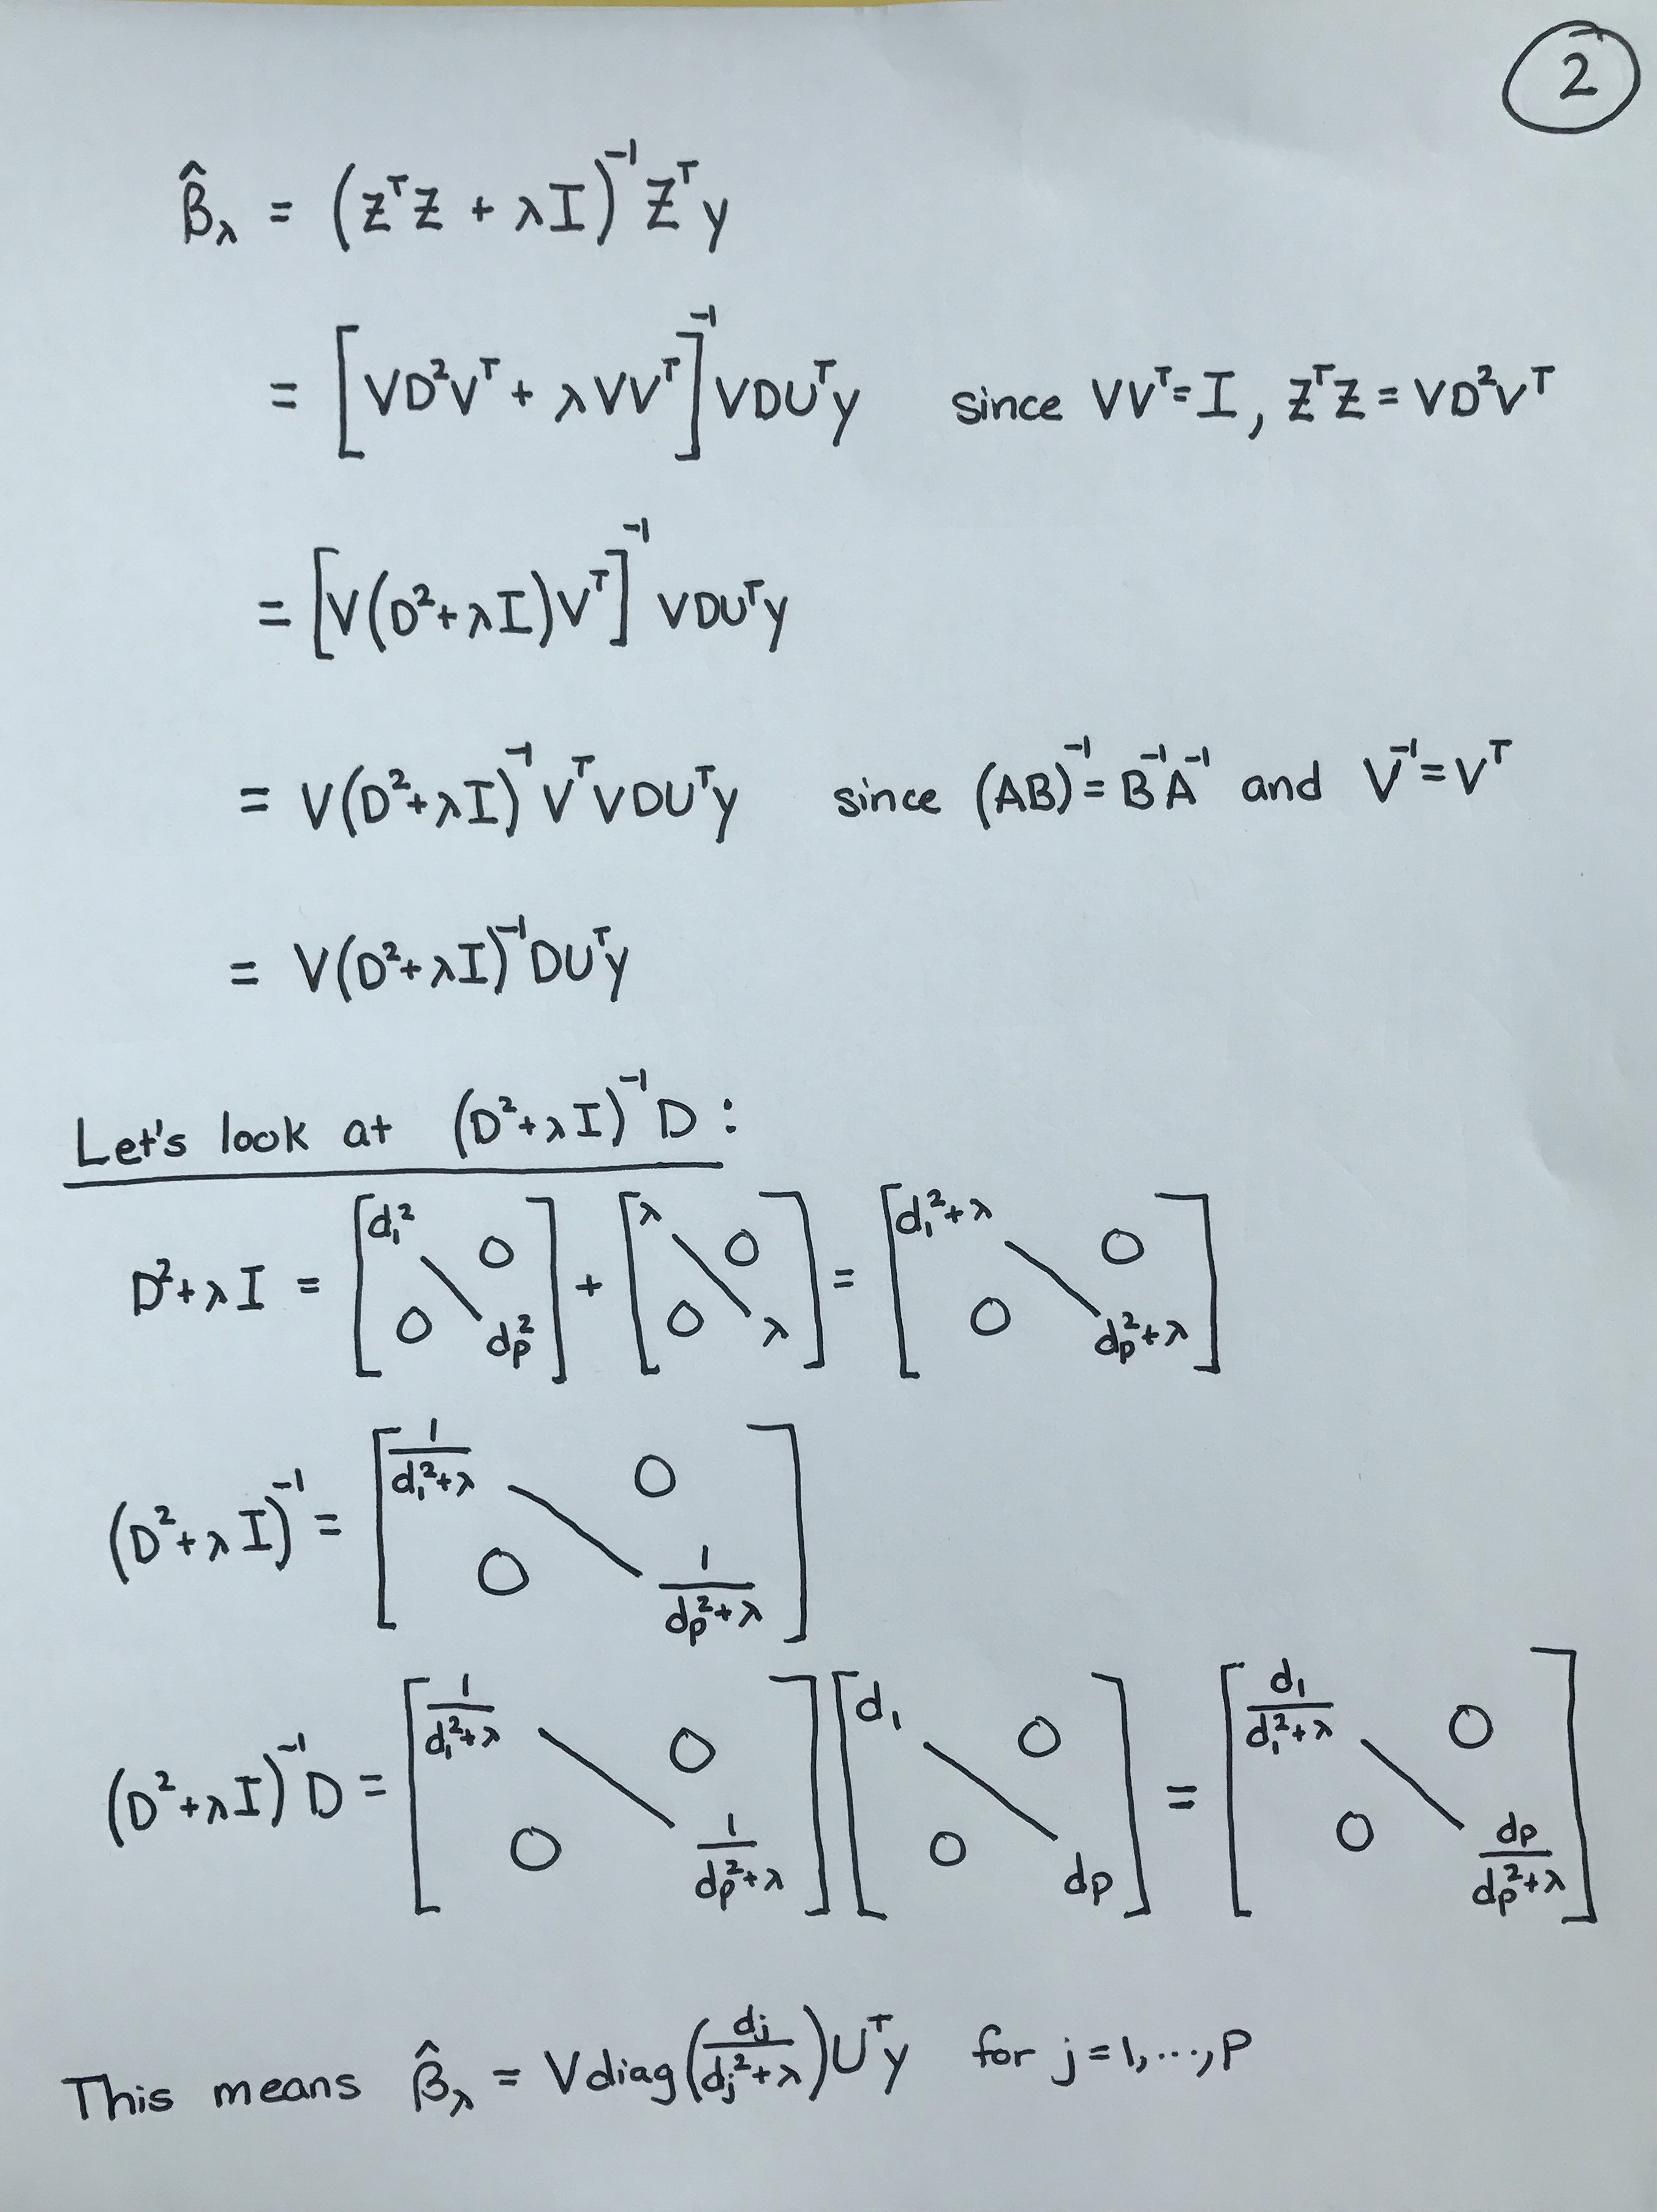 2
β̂_λ = (ZᵀZ + λI)⁻¹Zᵀy
= [VD²Vᵀ + λVVᵀ]⁻¹VDUᵀy since VVᵀ = I, ZᵀZ = VD²Vᵀ
= [V(D²+λI)Vᵀ]⁻¹ VDUᵀy
= V(D²+λI)⁻¹VᵀVDUᵀy since (AB)⁻¹ = B⁻¹A⁻¹ and V⁻¹ = Vᵀ
= V(D²+λI)⁻¹DUᵀy
Let's look at (D²+λI)⁻¹D :
D²+λI = [d₁² \ d_p², 0 0] + [λ \ λ, 0 0] = [d₁²+λ \ d_p²+λ, 0 0]
(D²+λI)⁻¹ = [1/(d₁²+λ) \ 1/(d_p²+λ), 0 0]
(D²+λI)⁻¹D = [1/(d₁²+λ) \ 1/(d_p²+λ), 0 0] [d₁ \ d_p, 0 0] = [d₁/(d₁²+λ) \ d_p/(d_p²+λ), 0 0]
This means β̂_λ = V diag(d_j/(d_j²+λ))Uᵀy for j=1,...,p